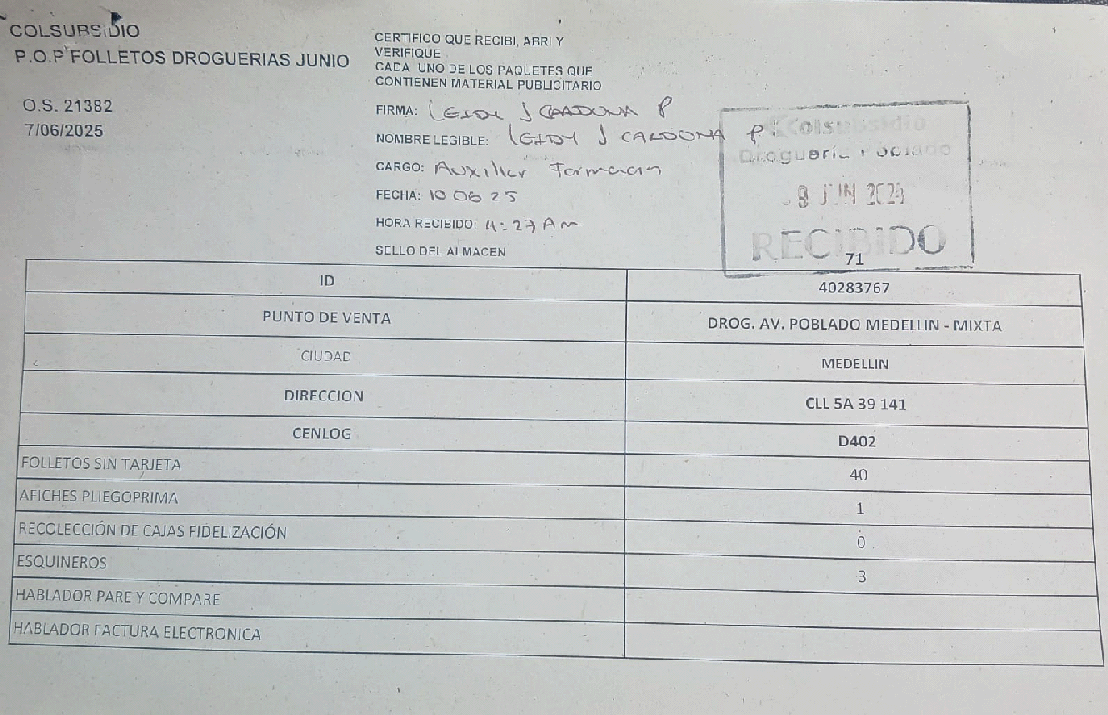 COLSUBSIDIO
P.O.P FOLLETOS DROGUERIAS JUNIO
O.S. 21382
7/06/2025
CERTIFICO QUE RECIBI, ABRI Y
VERIFIQUE
CADA UNO DE LOS PAQUETES QUE
CONTIENEN MATERIAL PUBLICITARIO
FIRMA: Leidy J Cardona P
NOMBRE LEGIBLE: Leidy J Cardona P
CARGO: Auxiliar
FECHA: 10 06 25
HORA RECIBIDO: 11:27 Am
SELLO DEL ALMACEN
Colsubsidio
Droguería Poblado
9 JUN 2025
RECIBIDO
71
ID 40283767
PUNTO DE VENTA DROG. AV. POBLADO MEDELLIN - MIXTA
CIUDAD MEDELLIN
DIRECCION CLL 5A 39 141
CENLOG D402
FOLLETOS SIN TARJETA 40
AFICHES PLIEGOPRIMA 1
RECOLECCIÓN DE CAJAS FIDELIZACIÓN 0
ESQUINEROS 3
HABLADOR PARE Y COMPARE
HABLADOR FACTURA ELECTRONICA